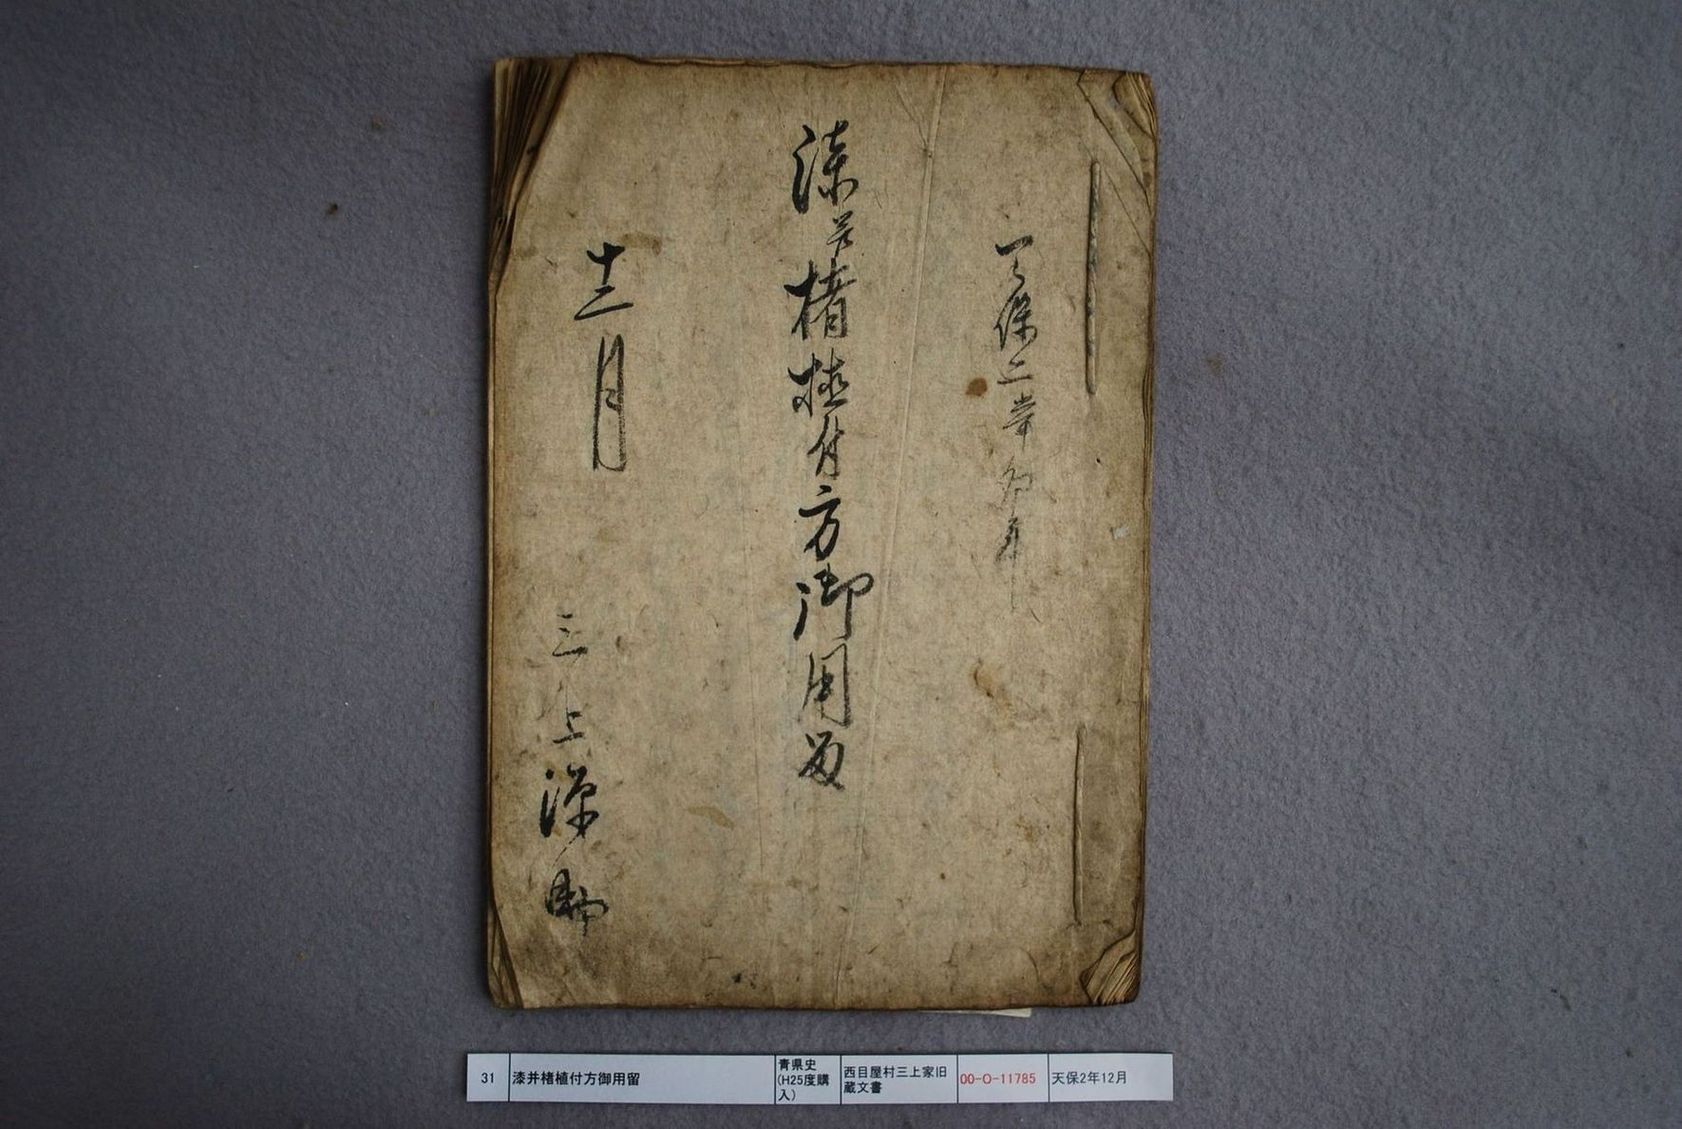 天保二年卯年
漆并楮植付方御用留
十二月
三上源助
31
漆并楮植付方御用留
青県史
(H25度購
入)
西目屋村三上家旧
蔵文書
00-O-11785
天保2年12月